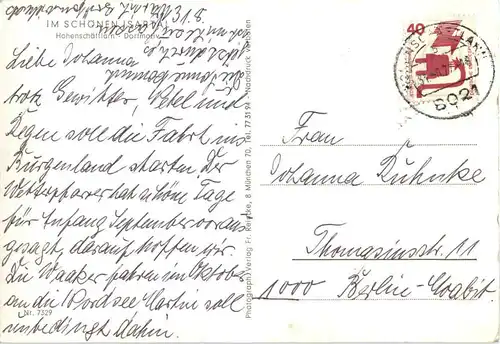 IM SCHÖNEN ISARTAL
Hohenschäftlarn - Dorfmotiv
Liebe Johanna
trotz Gewitter, Nebel und
Regen soll die Fahrt ins
Burgenland starten. Der
Wetterpfarrer hat schöne Tage
für Anfang September voraus
gesagt, darauf hoffen wir.
Die Waaker fahren im Oktober
an die Nordsee Martin soll
unbedingt dahin.
Nr. 7329
Photograph/Verlag Fr. Reincke, 8 München 70, Tel. 77 31 94 Nachdruck verboten
40
8021
Frau
Johanna Kuhnke
Thomasiusstr. 11
1000 Berlin-Moabit